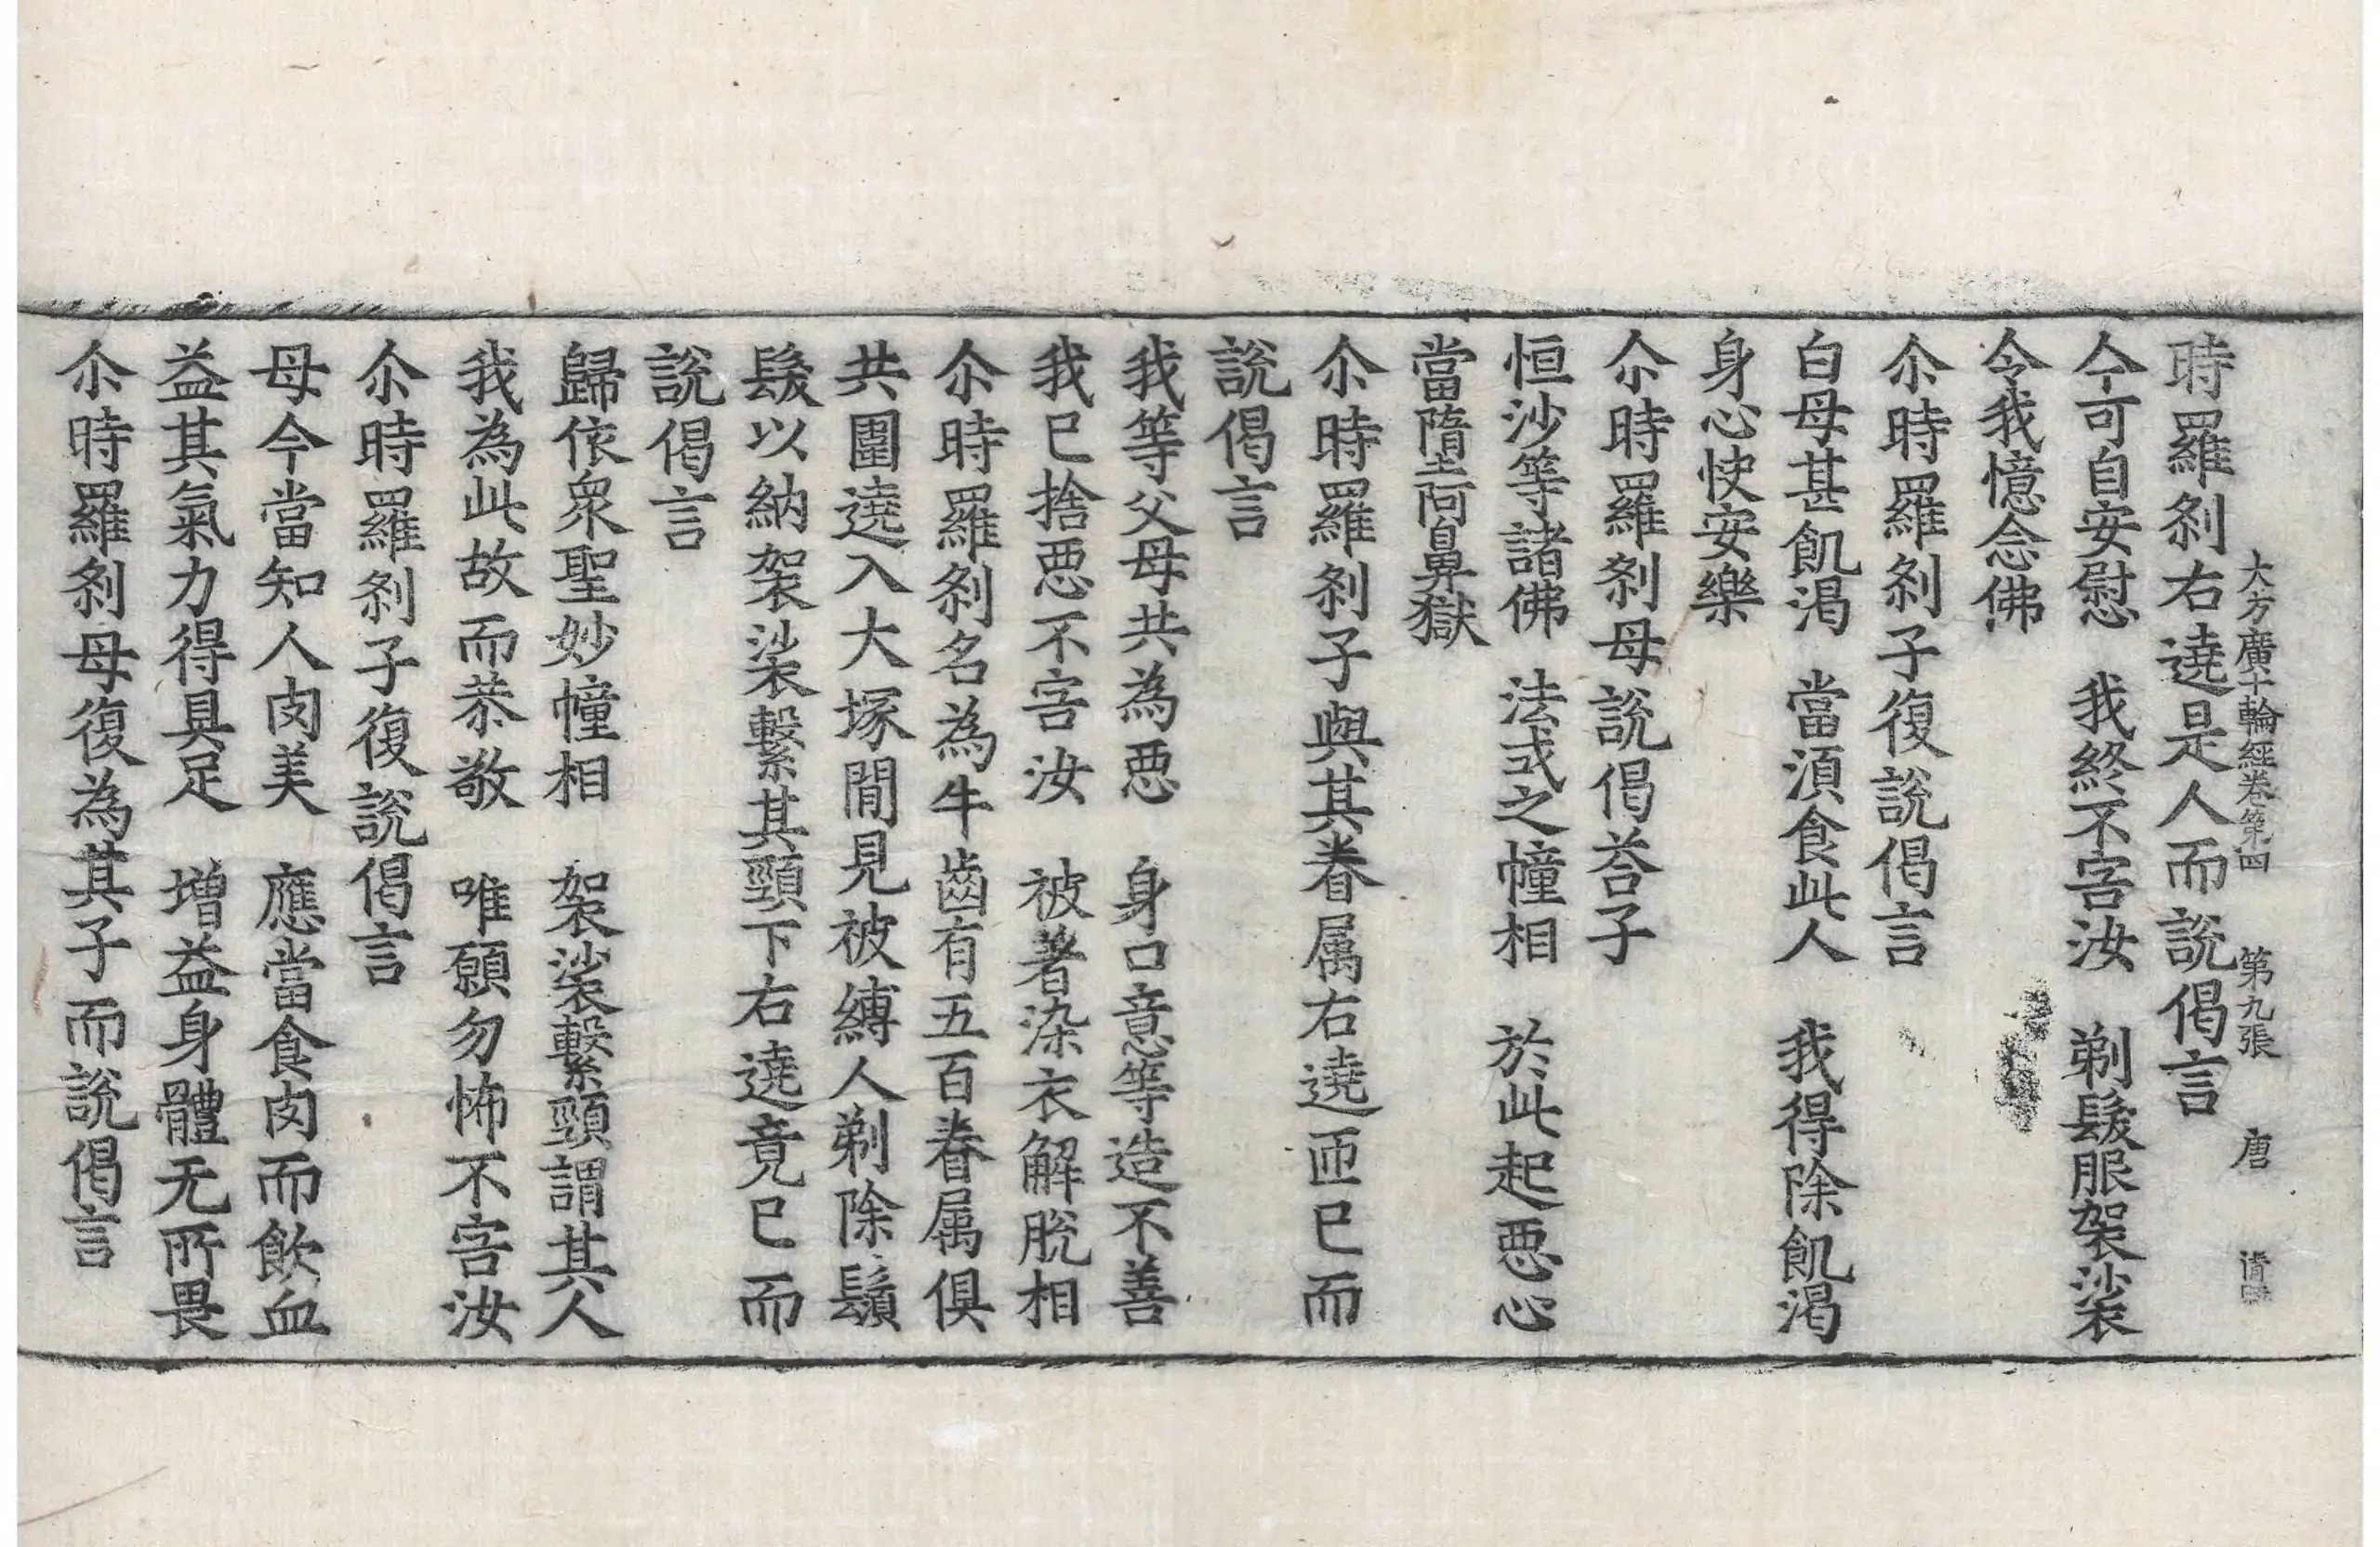 大方廣十輪經卷第四　第九張　唐
時羅剎右遶是人而說偈言
今可自安慰　我終不害汝　剃髮服袈裟
今我憶念佛
尒時羅剎子復說偈言
白母甚飢渴　當須食此人　我得除飢渴
身心快安樂
尒時羅剎母說偈荅子
恒沙等諸佛　法式之幢相　於此起惡心
當墮阿鼻獄
尒時羅剎子與其眷属右遶匝已而
說偈言
我等父母共為惡　身口意等造不善
我已捨惡不害汝　被著染衣解脫相
尒時羅剎名為牛齒有五百眷属俱
共圍遶入大塚間見被縛人剃除鬚
髮以納袈裟繫其頸下右遶竟已而
說偈言
歸依衆聖妙幢相　袈裟繫頸謂其人
我為此故而恭敬　唯願勿怖不害汝
尒時羅剎子復說偈言
母今當知人肉美　應當食肉而飲血
益其氣力得具足　增益身體无所畏
尒時羅剎母復為其子而說偈言